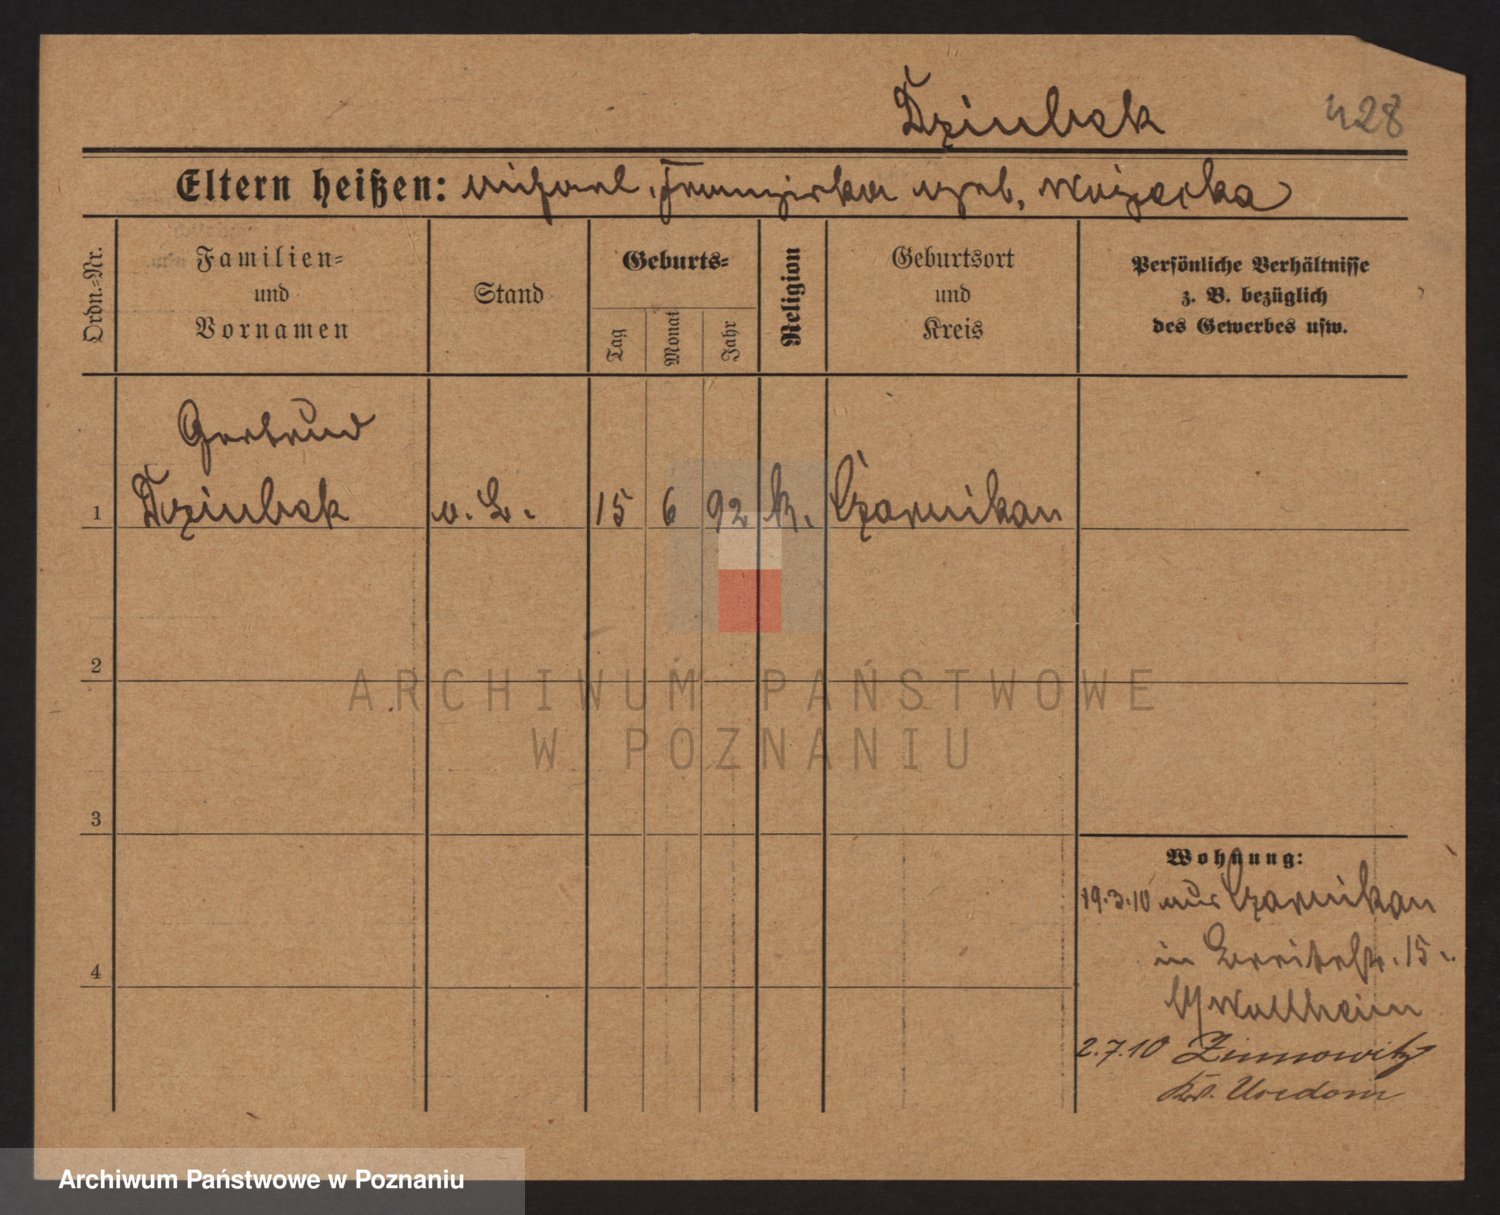 Dziubek 428
Eltern heißen: Michael, Franziska geb. Wozecka
Ordn.-Nr.
Familien-
und
Vornamen
Stand
Geburts-
Tag
Monat
Jahr
Religion
Geburtsort
und
Kreis
Persönliche Verhältnisse
z. B. bezüglich
des Gewerbes usw.
Gertrud
1 Dziubek o. B. 15 6 92 k. Czarnikau
2
ARCHIWUM PAŃSTWOWE
W POZNANIU
3
Wohnung:
19.3.10 aus Czarnikau
in Breitestr. 15
4
b/ Wollheim
2.7.10 Zinnowitz
Kr. Usedom
Archiwum Państwowe w Poznaniu